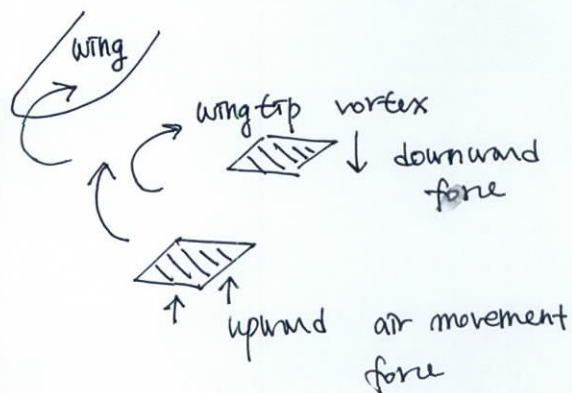 wing
wingtip vortex
downward
force
upward air movement
force